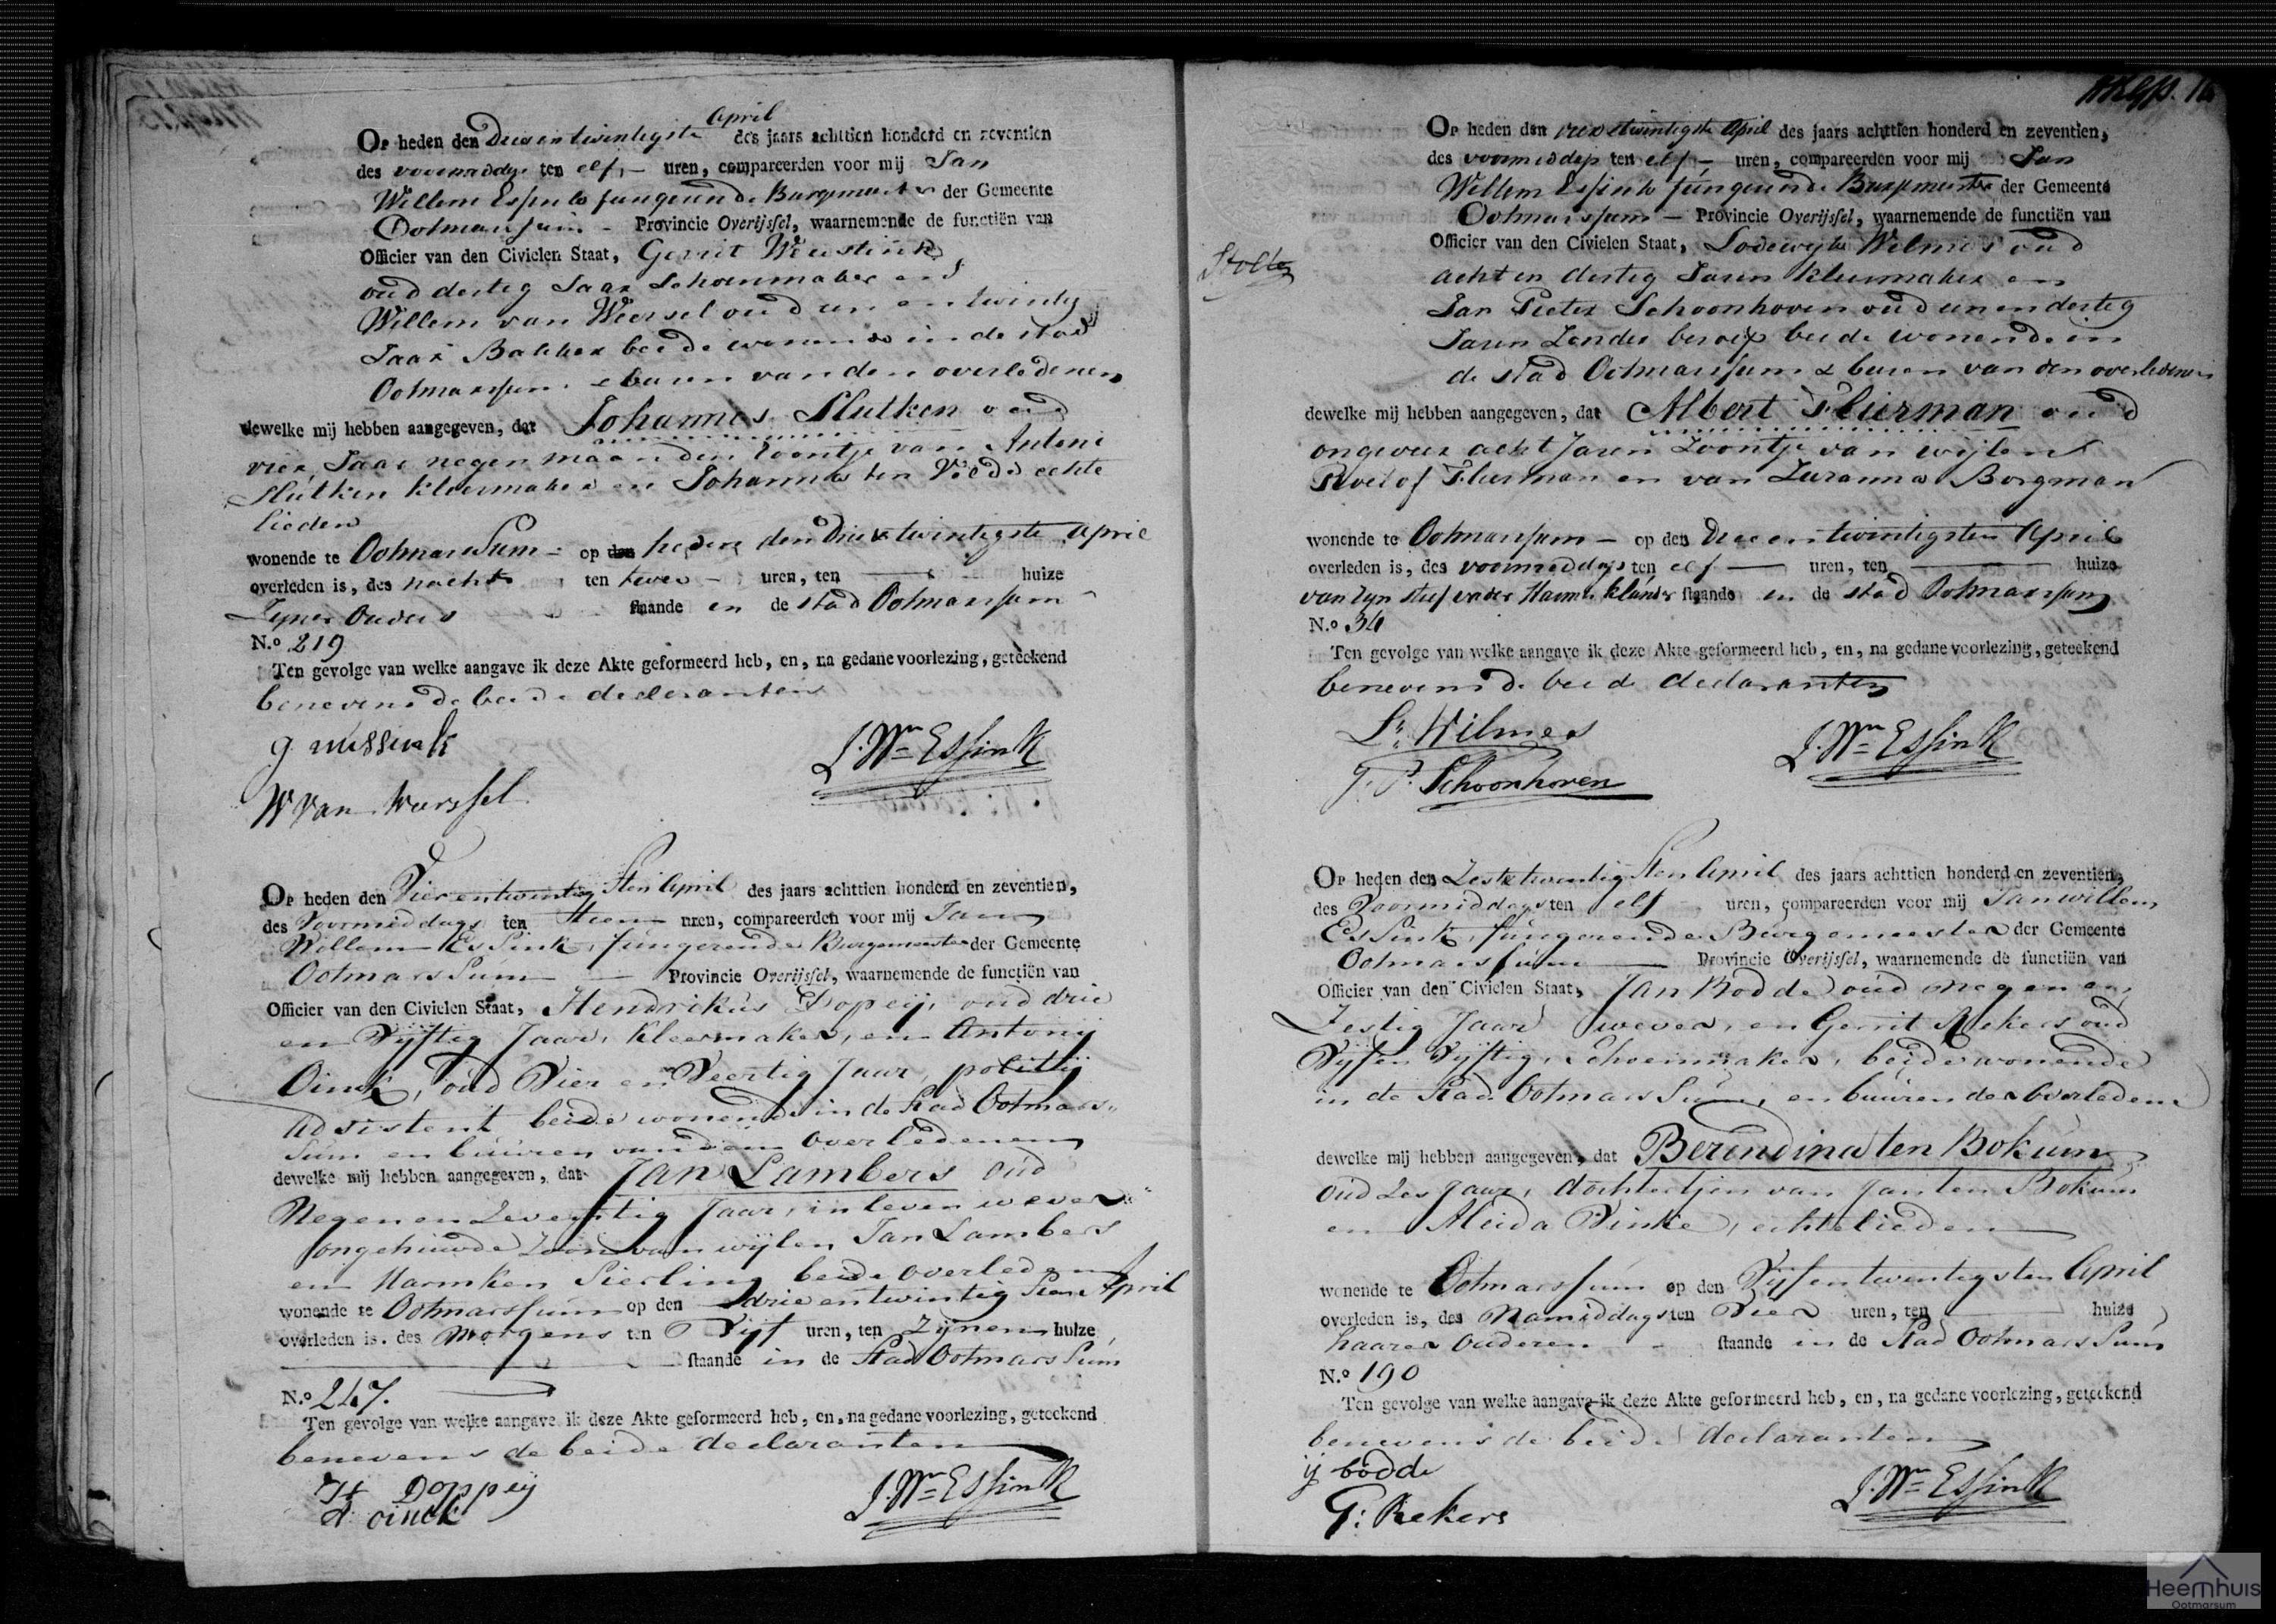 April
Op heden den Drieentwintigste des jaars achttien honderd en zeventien
des voormiddags ten elf – uren, compareerden voor mij Jan
Willem Essink fungeerende Burgemeester der Gemeente
Ootmarssum – Provincie Overijssel, waarnemende de functiën van
Officier van den Civielen Staat, Gerrit
oud dertig Jaar Schoenmaker en
Willem van Weersel oud een en twintig
Jaar Bakker beide wonende in de stad
Ootmarssum & buren van den overledenen
dewelke mij hebben aangegeven, dat Johannes Slutken oud
vier Jaar negen maanden Zoontje van Antoni
Slutken kleermaker en Johanna ten echte
lieden
wonende te Ootmarssum – op heden den Drie & twintigste April
overleden is, des nachts ten twee – uren, ten huize
Zyner Ouders staande in de stad Ootmarssum
N.o 219
Ten gevolge van welke aangave ik deze Akte geformeerd heb, en, na gedane voorlezing, geteekend
benevens de beide declaranten
J. Wm Essink
W van
Op heden den Vierentwintigsten April des jaars achttien honderd en zeventien,
des Voormiddags ten Tien uren, compareerden voor mij Jan
Willem Essink, fungerende Burgemeester der Gemeente
Ootmarssum — Provincie Overijssel, waarnemende de functiën van
Officier van den Civielen Staat, Hendrikus Doppeij, oud drie
en Vijftig Jaar, kleermaker, en Antonij
Oinck, oud Vier en Veertig Jaar, politij
adsistent beide wonende in de Stad Ootmars„
sum en buuren van den Overledenen
dewelke mij hebben aangegeven, dat Jan Lambers oud
Negen en Zeventig Jaar, in leven wever
ongehuwde Zoon van wijlen Jan Lambers
en Harmken Sierling beide overleden
wonende te Ootmarssum op den drie en twintigsten April
overleden is, des Morgens ten Vijf uren, ten Zijnen huize
staande in de Stad Ootmarssum
N.o 247.
Ten gevolge van welke aangave ik deze Akte geformeerd heb, en, na gedane voorlezing, geteekend
benevens de beide declaranten
H Doppeij
A: oinck
J. Wm Essink
Stolte
Op heden den vier & twintigste April des jaars achttien honderd en zeventien,
des voormiddags ten elf – uren, compareerden voor mij Jan
Willem Essink fungeerende Burgemeester der Gemeente
Ootmarssum – Provincie Overijssel, waarnemende de functiën van
Officier van den Civielen Staat, Lodewyk Wilmes oud
acht en dertig Jaren kleermaker en
Jan Pieter Schoonhoven oud een en dertig
Jaren Zonder beroep beide wonende in
de stad Ootmarssum & buren van den overledenen
dewelke mij hebben aangegeven, dat Albert Flierman oud
ongeveer acht Jaren Zoontje van wijlen
Roelof Flierman en van Zuzanna Borgman
wonende te Ootmarssum – op den Drie en twintigsten April
overleden is, des voormiddags ten elf — uren, ten — huize
van zyn stiefvader Harm staande in de stad Ootmarssum
N.o 34
Ten gevolge van welke aangave ik deze Akte geformeerd heb, en, na gedane voorlezing, geteekend
benevens de beide declaranten
L: Wilmes
J. P. Schoonhoven
J. Wm Essink
Op heden den Zes & twintigsten April des jaars achttien honderd en zeventien,
des Voormiddags ten elf uren, compareerden voor mij Jan willem
Essink, fungerende Burgemeester der Gemeente
Ootmarssum — Provincie Overijssel, waarnemende de functiën van
Officier van den Civielen Staat, Jan Bodde oud Negen en
Zestig Jaar wever, en Gerrit Rekers oud
Vijf en Vijftig, Schoenmaker, beide wonende
in de Stad Ootmarssum, en buuren der overledene
dewelke mij hebben aangegeven, dat Berendina ten Bokum
Oud Zes Jaar, dochtertjen van Jan ten Bokum
en Aleida Vinke, echtelieden
wonende te Ootmarssum op den Vijfentwintigsten April
overleden is, des Namiddags ten Vier uren, ten — huize
haarer Ouderen staande in de Stad Ootmarssum
N.o 190
Ten gevolge van welke aangave ik deze Akte geformeerd heb, en, na gedane voorlezing, geteekend
benevens de beide declaranten
ij bodde
G: Rekers
J. Wm Essink
Heemhuis
Ootmarsum